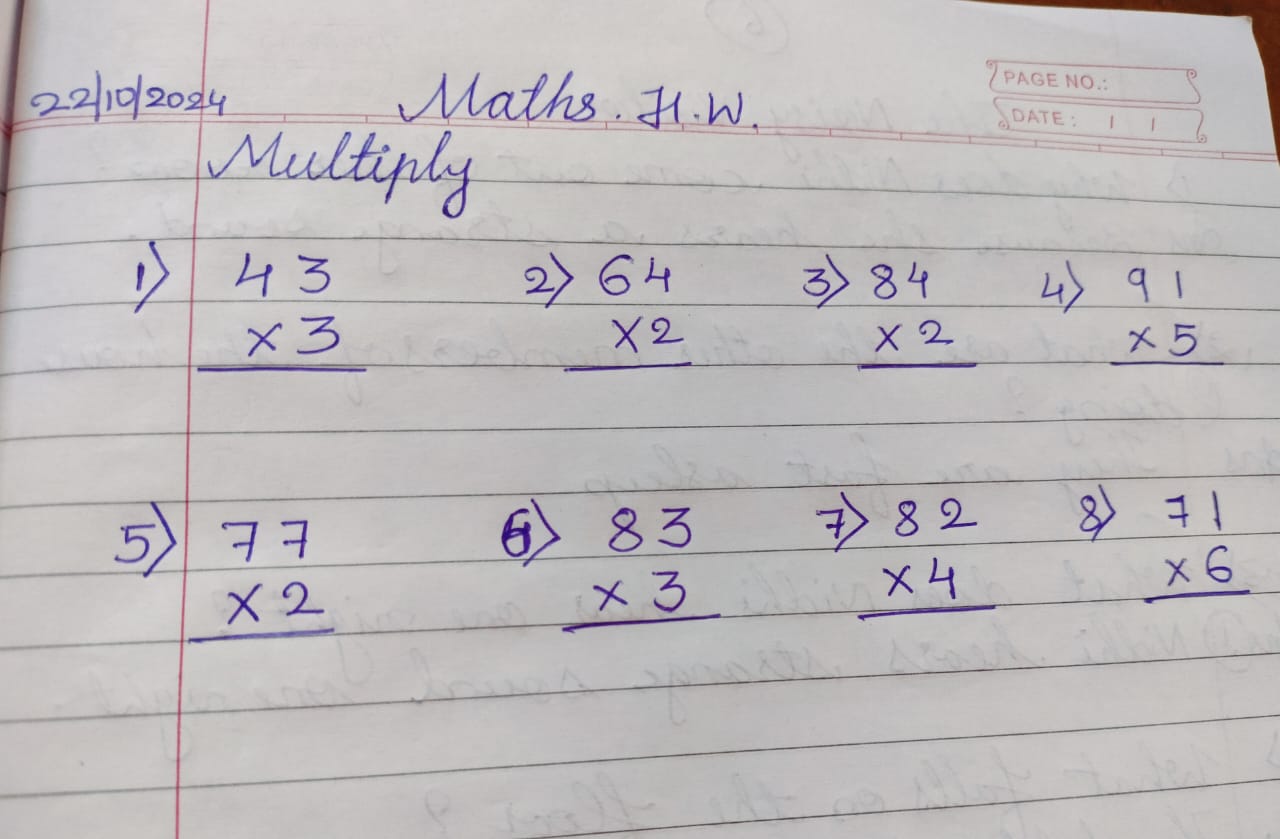 PAGE NO.:
22/10/2024 Maths. H.W.
DATE: / /
Multiply
1) 43 2) 64 3) 84 4) 91
×3 ×2 ×2 ×5
5) 77 6) 83 7) 82 8) 71
×2 ×3 ×4 ×6